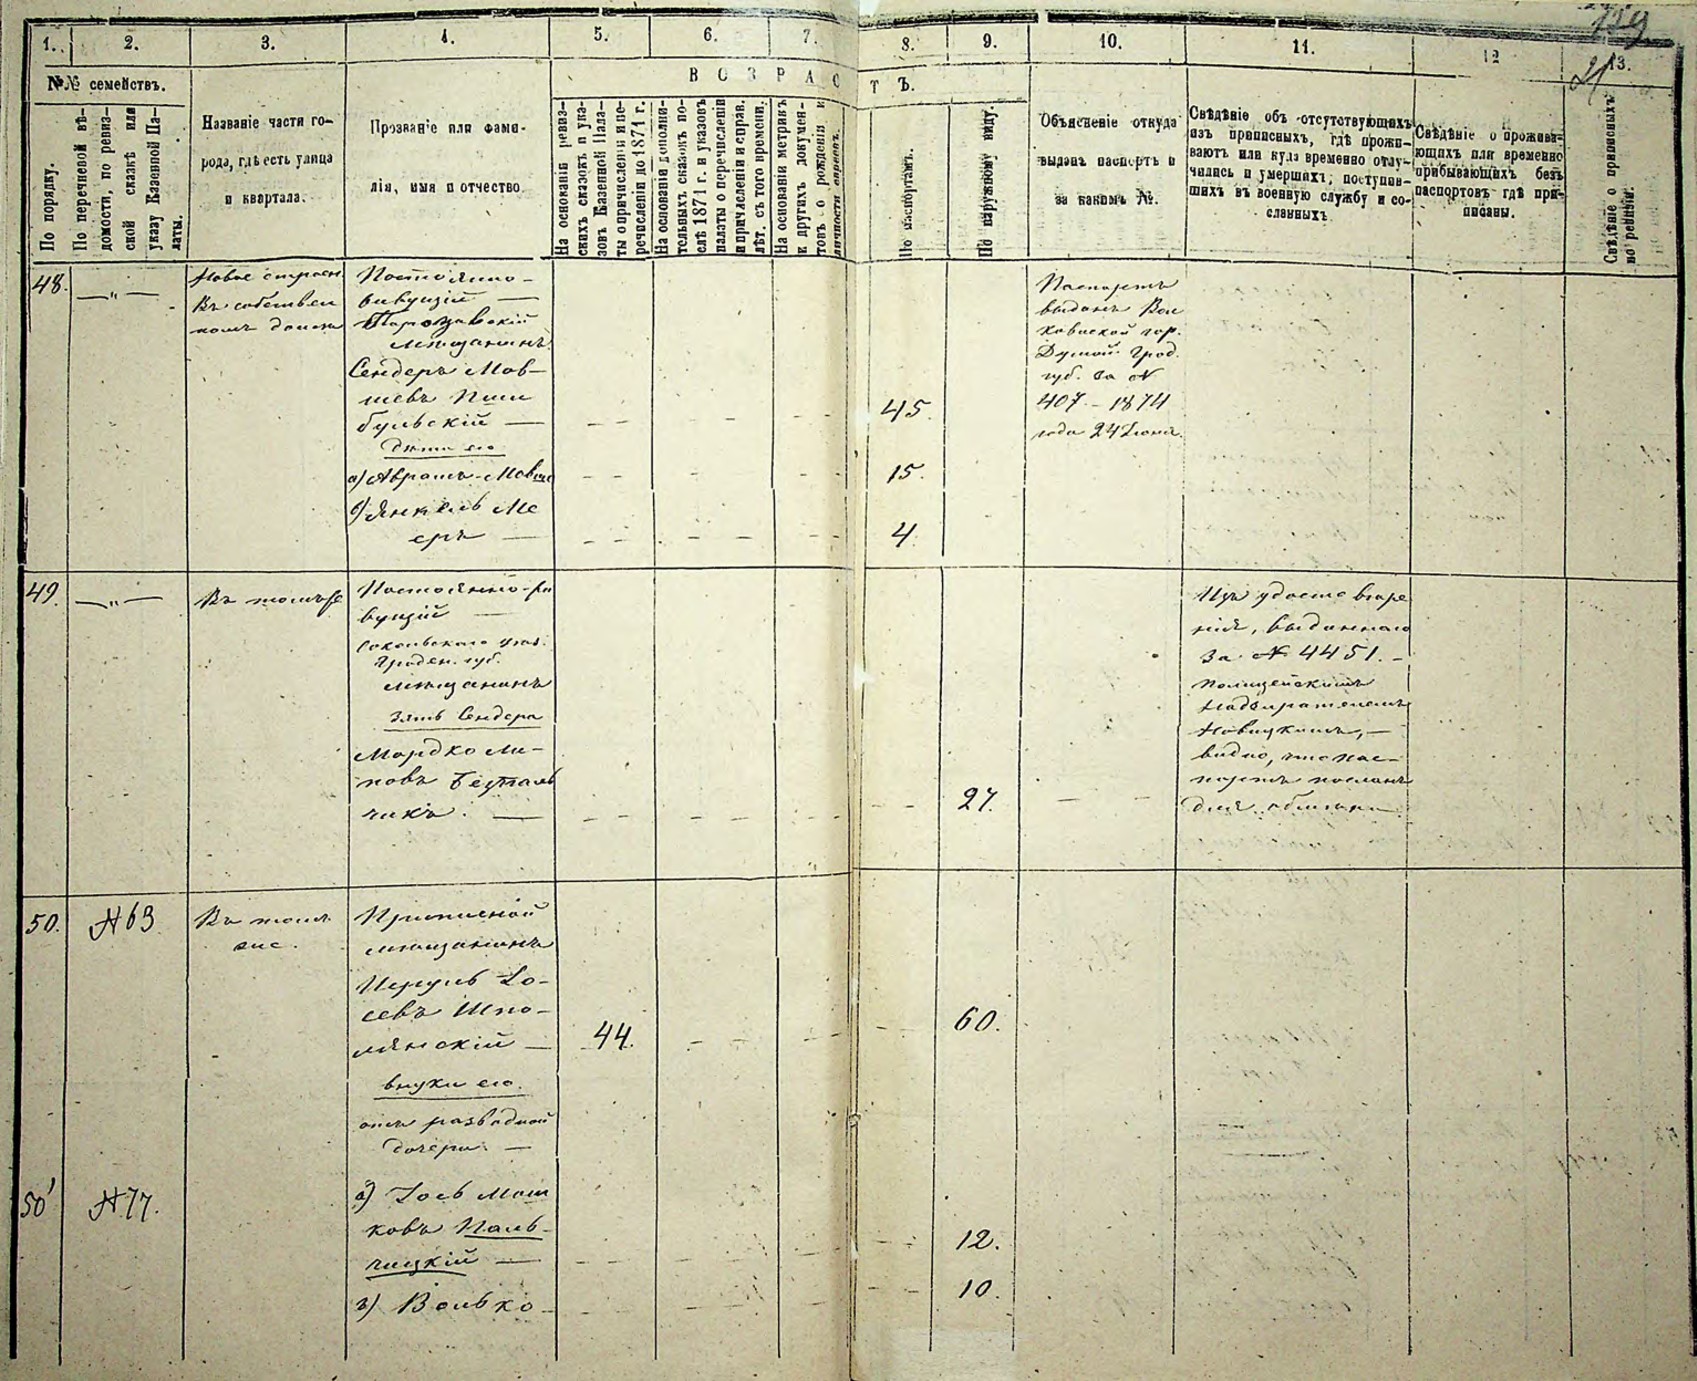 119
21
1.
2.
3.
4.
5.
6.
7.
8.
9.
10.
11.
12
13.
№№ семействъ.
В О З Р А С Т Ъ.
По порядку.
По перечневой вѣ-
домости, по ревиз-
ской сказкѣ или
указу Казенной Па-
латы.
Названіе части го-
рода, гдѣ есть улица
и квартала.
Прозваніе или фами-
лія, имя и отчество
На основаніи ревиз-
скихъ сказокъ и ука-
зовъ Казенной Пала-
ты о причисленіи и пе-
речисленіи до 1871 г.
На основаніи дополни-
тельныхъ сказокъ по-
слѣ 1871 г. и указовъ
палаты о перечисленіи
и причисленіи и справ.
лѣт. съ того времени.
На основаніи метрикъ
и другихъ докумен-
товъ о рожденіи и
личности евреевъ.
По паспортамъ.
По наружному виду.
Объясненіе откуда
выданъ паспортъ и
за какимъ №.
Свѣдѣніе объ отсутствующихъ
изъ приписныхъ, гдѣ прожи-
ваютъ или куда временно отлу-
чились и умершихъ, поступив-
шихъ въ военную службу и со-
сланныхъ
Свѣдѣніе о прожива-
ющихъ или временно
прибывающихъ безъ
паспортовъ гдѣ при-
писаны.
Свѣдѣніе о приписныхъ
по ревизіи.
48.
—„—
Новое строен
Въ собствен
номъ домѣ
Постоянно-
живущій —
мѣщанинъ
Сендеръ Мов-
шевъ
бульскій —
дѣти его
а) Аврамъ-Мовша
б) Янкель Ме
еръ —
45.
15.
4.
Паспортъ
выданъ Вол
ковиской гор.
Думой Грод.
губ. за №
407 – 1874
года 24 Іюня.
49.
—„—
Въ томъ же
Постоянно-жи
вущій —
Сокольскаго уѣз.
Гроден. губ.
мѣщанинъ
Зять Сендера
Мордко
чикъ. —
27.
Изъ удостовѣре
нія, выданнаго
За № 4451. –
полицейскимъ
Надзирателемъ
Новицкимъ, –
видно, что пас-
портъ посланъ
для обмѣна
50.
№ 63
Въ томъ
же.
Приписной
мѣщанинъ
Іо-
севъ Шпо-
лянскій —
внуки его.
отъ разводной
дочери. —
44.
60.
50'
№ 77.
а) Іось Мош
ковъ Паль-
чицкій —
12.
в) Волько –
10.